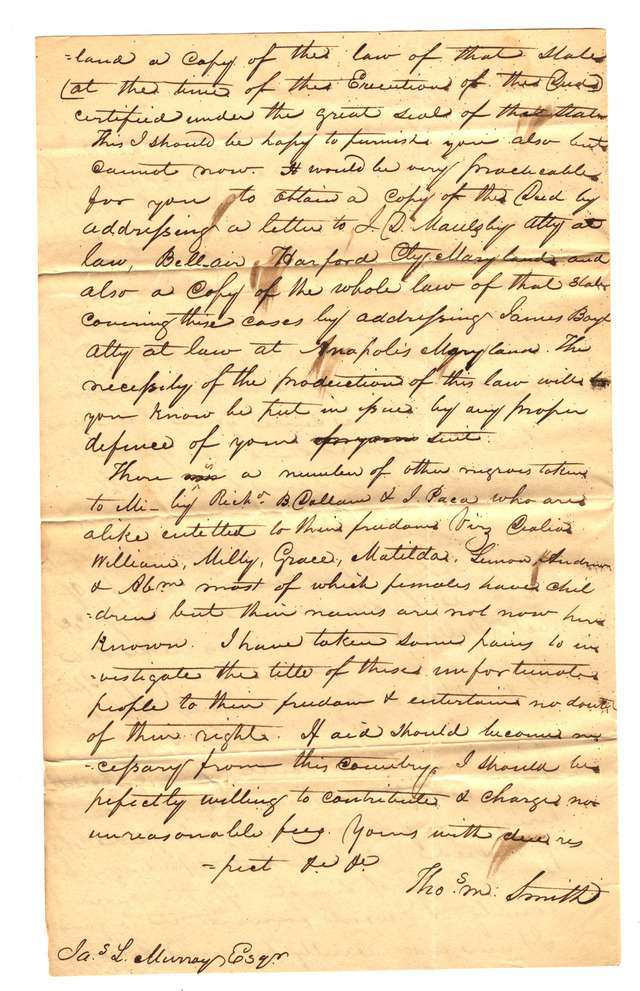 =land a Copy of the law of that State
(at the time of the Execution of the Deed)
certified under the great seal of that State
This I should be hapy to furnish you also but
cannot now. It would be very practicable
for you to obtain a copy of the Deed by
addressing a letter to I. D. Maulsby Atty at
law, Bell-air Harford Cty Maryland and
also a Copy of the whole law of that State
covering these cases by addressing James Boyl
Atty at law at Anapolis Maryland. The
necessity of the production of this law will
you know be put in issue by any proper
defence of your suit.
There is a number of other negroes taken
to Mi- by Richd B Dallam & I. Paca who are
alike entetled to their freedom Viz Cealia
William, Milly, Grace, Matilda, Simon, Andrew
& Abm most of which females have chil
=dren but their names are not now here
Known. I have taken some pains to in
=vestigate the title of these unfortunate
people to their freedom & entertain no doubt
of their right. If aid should become ne
=cessary from this Country, I should be
pefectly willing to contribute & charge no
unreasonable fees. Yours with due res
=pect &c &c
Thos. M. Smith
Jas. L. Murray Esqr